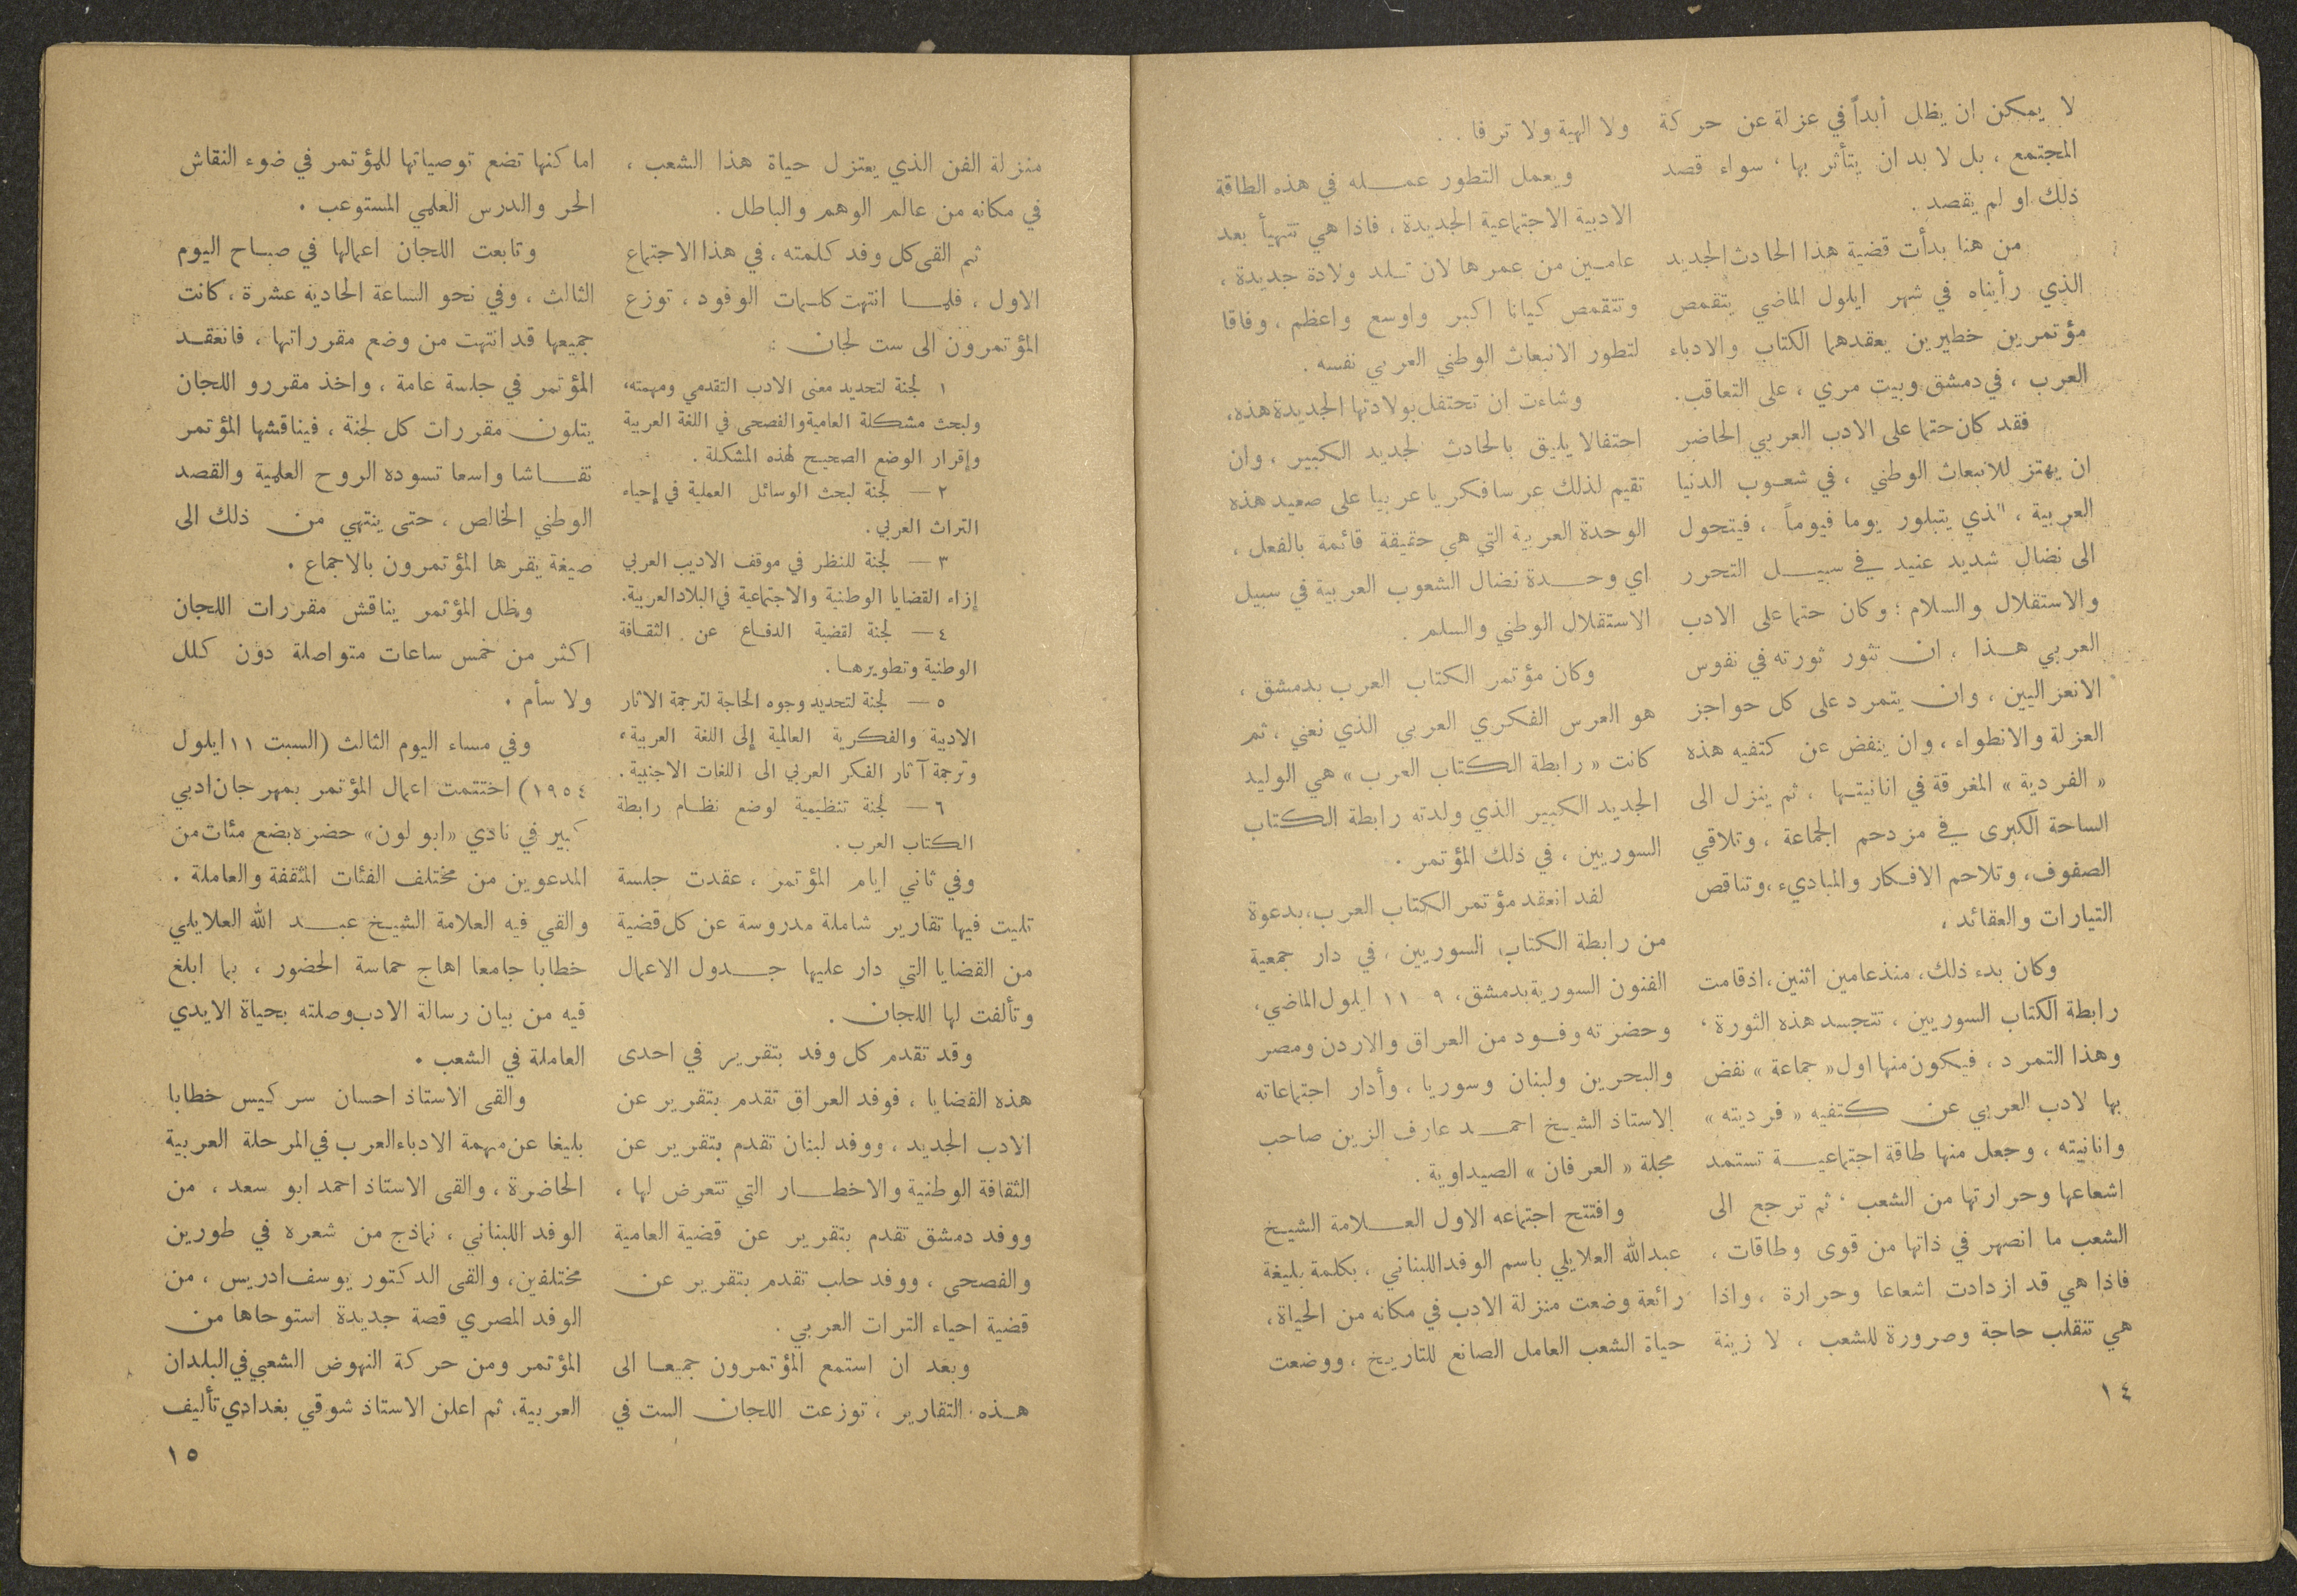 لا يمكن ان يظل أبداً في عزلة عن حركة
المجتمع ، بل لا بد ان يتأثر بها ، سواء قصد
ذلك او لم يقصد .
من هنا بدأت قضية هذا الحادث الجديد
الذي رأيناه في شهر ايلول الماضي يتقمص
مؤتمرين خطيرين يعقدهما الكتاب والادباء
العرب ، في دمشق وبيت مري ، على التعاقب .
فقد كان حتما على الادب العربي الحاضر
ان يهتز للانبعاث الوطني ، في شعوب الدنيا
العربية ، الذي يتبلور يوما فيوماً ، فيتحول
الى نضال شديد عنيد في سبيل التحرر
والاستقلال والسلام ؛ وكان حتما على الادب
العربي هذا ، ان تثور ثورته في نفوس
الانعزاليين ، وان يتمرد على كل حواجز
العزلة والانطواء ، وان ينفض عن كتفيه هذه
« الفردية » المغرقة في انانيتها ، ثم ينزل الى
الساحة الكبرى في مزدحم الجماعة ، وتلاقي
الصفوف ، وتلاحم الافكار والمباديء ، وتناقص
التيارات والعقائد ،
وكان بدء ذلك ، منذ عامين اثنين ، اذ قامت
رابطة الكتاب السوريين ، تتجسد هذه الثورة ،
وهذا التمرد ، فيكون منها اول « جماعة » نفض
بها لادب العربي عن كتفيه « فرديته »
وانانيته ، وجعل منها طاقة اجتماعية تستمد
اشعاعها وحرارتها من الشعب ، ثم ترجع الى
الشعب ما انصهر في ذاتها من قوى وطاقات ،
فاذا هي قد ازدادت اشعاعا وحرارة ، واذا
هي تنقلب حاجة وضرورة للشعب ، لا زينة
ولا الهية ولا ترفا . .
ويعمل التطور عمله في هذه الطاقة
الادبية الاجتماعية الجديدة ، فاذا هي تتهيأ بعد
عامين من عمرها لان تلد ولادة جديدة ،
وتتقمص كيانا اكبر واوسع واعظم ، وفاقا
لتطور الانبعاث الوطني العربي نفسه .
وشاءت ان تحتفل بولادتها الجديدة هذه ،
احتفالا يليق بالحادث لجديد الكبير ، وان
تقيم لذلك عرسا فكريا عربيا على صعيد هذه
الوحدة العربية التي هي حقيقة قائمة بالفعل ،
اي وحدة نضال الشعوب العربية في سبيل
الاستقلال الوطني والسلم .
وكان مؤتمر الكتاب العرب بدمشق ،
هو العرس الفكري العربي الذي نعني ، ثم
كانت « رابطة الكتاب العرب » هي الوليد
الجديد الكبير الذي ولدته رابطة الكتاب
السوريين ، في ذلك المؤتمر .
لقد انعقد مؤتمر الكتاب العرب ، بدعوة
من رابطة الكتاب السوريين ، في دار جمعية
الفنون السورية بدمشق ، ٩ - ١١ ايلول الماضي ،
وحضرته وفود من العراق والاردن ومصر
والبحرين ولبنان وسوريا ، وأدار اجتماعاته
الاستاذ الشيخ احمد عارف الزين صاحب
مجلة « العرفان » الصيداوية .
وافتتح اجتماعه الاول العلامة الشيخ
عبد الله العلايلي باسم الوفد اللبناني ، بكلمة بليغة
رائعة وضعت منزلة الادب في مكانه من الحياة ،
حياة الشعب العامل الصانع للتاريخ ، ووضعت
١٤
منزلة الفن الذي يعتزل حياة هذا الشعب ،
في مكانه من عالم الوهم والباطل .
ثم القى كل وفد كلمته ، في هذا الاجتماع
الاول ، فلما انتهت كلمات الوفود ، توزع
المؤتمرون الى ست لجان :
١ لجنة لتحديد معنى الادب التقدمي ومهمته ،
ولبحث مشكلة العامية والفصحى في اللغة العربية
وإقرار الوضع الصحيح لهذه المشكلة .
٢ — لجنة لبحث الوسائل العملية في إحياء
التراث العربي .
٣ — لجنة للنظر في موقف الاديب العربي
إزاء القضايا الوطنية والاجتماعية في البلاد العربية .
٤ — لجنة لقضية الدفاع عن الثقافة
الوطنية وتطويرها .
٥ — لجنة لتحديد وجوه الحاجة لترجمة الاثار
الادبية والفكرية العالمية إلى اللغة العربية ،
وترجمة آثار الفكر العربي الى اللغات الاجنبية .
٦ — لجنة تنظيمية لوضع نظام رابطة
الكتاب العرب .
وفي ثاني ايام المؤتمر ، عقدت جلسة
تليت فيها تقارير شاملة مدروسة عن كل قضية
من القضايا التي دار عليها جدول الاعمال
وتألفت لها اللجان .
وقد تقدم كل وفد بتقرير في احدى
هذه القضايا ، فوفد العراق تقدم بتقرير عن
الادب الجديد ، ووفد لبنان تقدم بتقرير عن
الثقافة الوطنية والاخطار التي تتعرض لها ،
ووفد دمشق تقدم بتقرير عن قضية العامية
والفصحى ، ووفد حلب تقدم بتقرير عن
قضية احياء التراث العربي .
وبعد ان استمع المؤتمرون جميعا الى
هذه التقارير ، توزعت اللجان الست في
اماكنها تضع توصياتها للمؤتمر في ضوء النقاش
الحر والدرس العلمي المستوعب .
وتابعت اللجان اعمالها في صباح اليوم
الثالث ، وفي نحو الساعة الحادية عشرة ، كانت
جميعها قد انتهت من وضع مقرراتها ، فانعقد
المؤتمر في جلسة عامة ، واخذ مقررو اللجان
يتلون مقررات كل لجنة ، فيناقشها المؤتمر
نقاشا واسعا تسوده الروح العلمية والقصد
الوطني الخالص ، حتى ينتهي من ذلك الى
صيغة يقرها المؤتمرون بالاجماع .
وظل المؤتمر يناقش مقررات اللجان
اكثر من خمس ساعات متواصلة دون كلل
ولا سأم .
وفي مساء اليوم الثالث (السبت ١١ ايلول
١٩٥٤) اختتمت اعمال المؤتمر بمهرجان ادبي
كبير في نادي «ابولون» حضره بضع مئات من
المدعوين من مختلف الفئات المثقفة والعاملة .
والقي فيه العلامة الشيخ عبد الله العلايلي
خطابا جامعا اهاج حماسة الحضور ، بما ابلغ
فيه من بيان رسالة الادب وصلته بحياة الايدي
العاملة في الشعب .
والقى الاستاذ احسان سركيس خطابا
بليغا عن مهمة الادباء العرب في المرحلة العربية
الحاضرة ، والقى الاستاذ احمد ابو سعد ، من
الوفد اللبناني ، نماذج من شعره في طورين
مختلفين ، والقى الدكتور يوسف ادريس ، من
الوفد المصري قصة جديدة استوحاها من
المؤتمر ومن حركة النهوض الشعبي في البلدان
العربية . ثم اعلن الاستاذ شوقي بغدادي تأليف
١٥